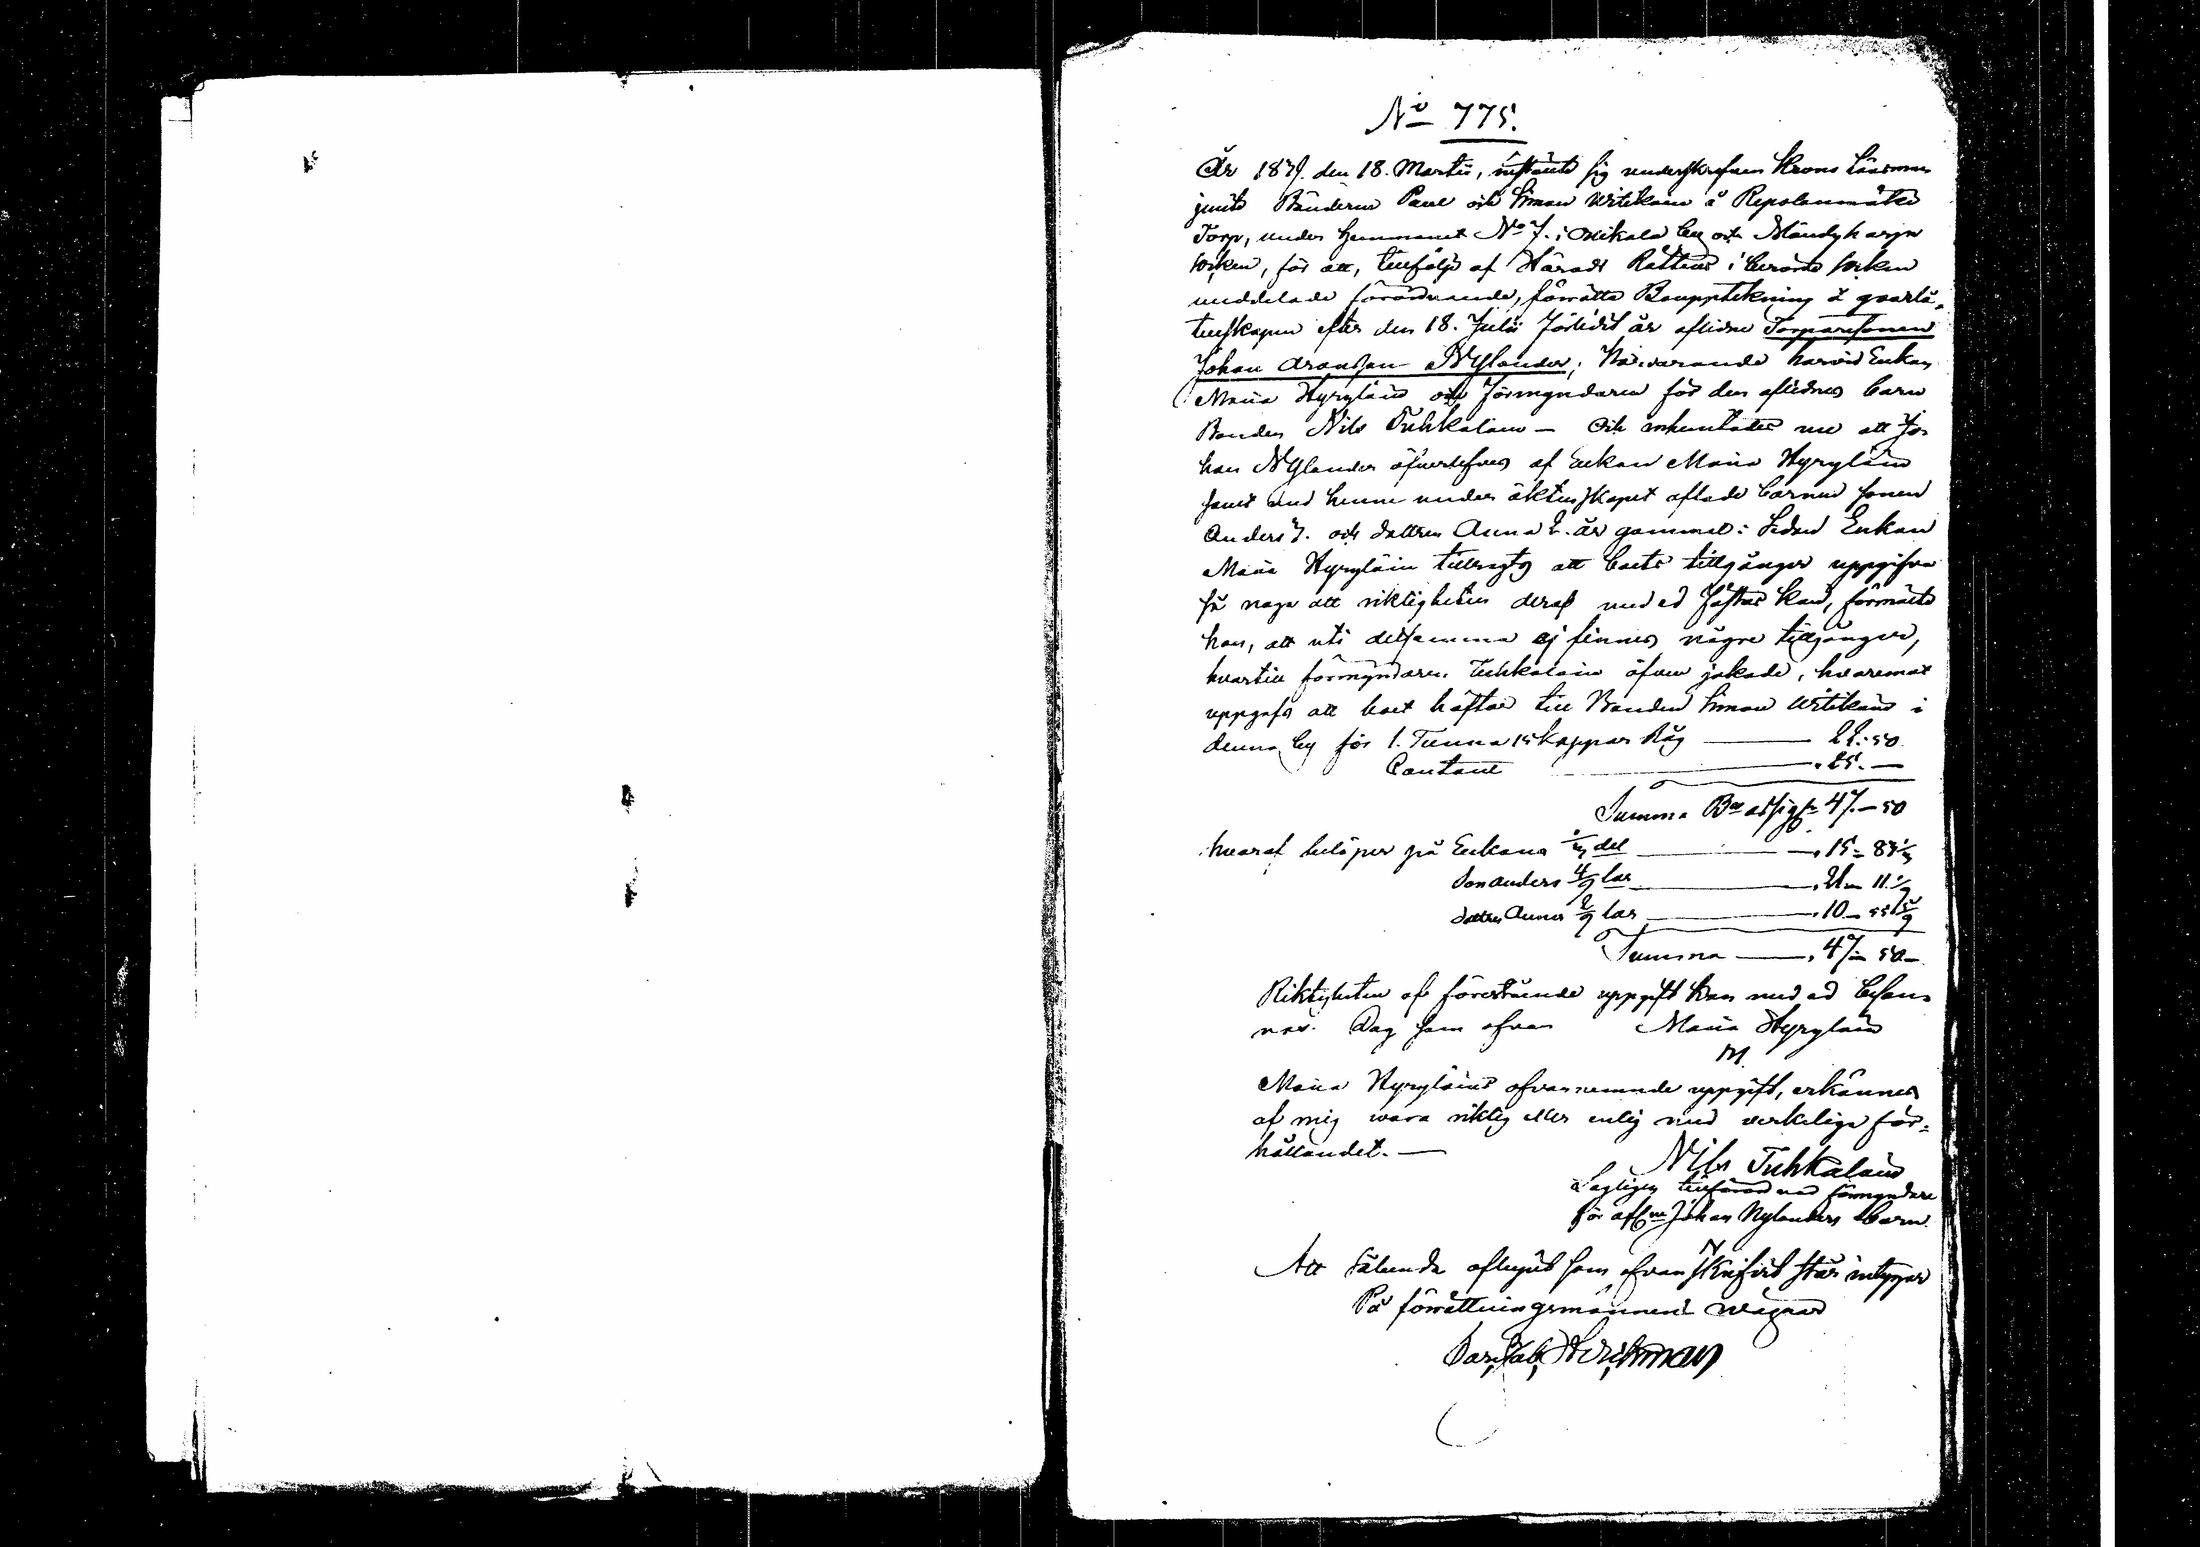 No 775.
År 1839. den 18. Martii, instälte sig underskrefven Krono Länsman
jemte Bönderne Paul och Simon Witikain å Repolanmäki
Torp, under hemmanet No 7. i Nikala by och Mändyharju
Socken, för att, tillfölje af Härads Rättens i berörde Socken
meddelade förordnande, förrätta Bouppteckning å qvarlå-
tenskapen efter den 18. Julii förledit år aflidne Torparesonen
Johan Aronsson Nylander; Närvarande härvid Enkan
Maria Hyryläin och förmyndaren för den aflidnes barn
Bonden Nils Tuhkalain — Och inhemtades nu att Jo-
han Nylander öfverlefves af Enkan Maria Hyryläin
samt med henne under äktenskapet aflade barnen sonen
Anders 7. och dottren Anna 2. år gammal: Sedan Enkan
Maria Hyryläin tillsagts att boets tillgångar uppgifva
så noga att riktigheten deraf med ed fästas kan, förmälte
hon, att uti detsamma ej finnes någre tillgångar,
hvartill förmyndaren Tuhkalain äfven jakade, hvaremot
uppgafs att boet häftar till Bonden Simon Witikain i
denna by för 1. Tunna 15 kappar Råg — 22.50.
Contant — 25. —
Summa Bco assign: 47.—50
hvaraf belöper på Enkans 1/3 del — 15 — 83 1/3
Son Anders 4/9 lar — 21 — 11 1/9
dottren Anna 2/9 lar — 10 — 55 5/9
Summa — 47 — 50 —
Riktigheten af förestående uppgift kan med ed besan-
nas. Dag som ofvan Maria Hyryläin
M
Maria Hyryläins ofvannemnde uppgift, erkännes
af mig wara riktig eller enlig med verkeliga för-
hållandet. —
Nils Tuhkalain
Lagligen tillförordnad förmyndare
för aflne Johan Nylanders barn.
N
Att sålunda aflupit som ofvan skrifvit står intygar
På förrättningsmännens wägnar